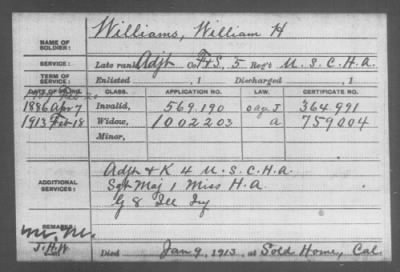 NAME OF SOLDIER: Williams, William H
SERVICE: Late rank Adjt Co. F&S, 5 Reg't U. S. C. H. A.
TERM OF SERVICE: Enlisted , 1 Discharged , 1
DATE OF FILING. CLASS. APPLICATION NO. LAW. CERTIFICATE NO.
1886 Apr 7 Invalid, 569.190 364.991
1913 Feb 18 Widow, 1002203 a 759004
Minor,
ADDITIONAL SERVICES: Adjt & K 4 U. S. C. H. A.
Sgt Maj 1 Miss H. A.
G 8 Ill Inf
REMARKS
J.H.W.
Died Jan 9, 1913, at Sold Home, Cal.